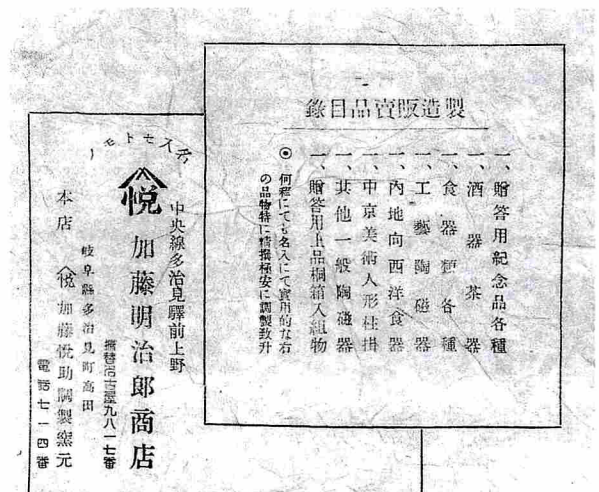 製造販賣品目錄
一、贈答用紀念品各種
一、酒器茶器
一、食器類各種
一、工藝陶磁器
一、內地向西洋食器
一、中京美術人形柱掛
一、其他一般陶磁器
一、贈答用上品桐箱入組物
◎何程にても名入にて實用的な右
の品物特に精撰極安に調製致升
中央線多治見驛前上野
悦 加藤明治郎商店
振替名古屋九八一七番
岐阜縣多治見町高田
本店 悦 加藤悅助調製窯元
電話七一四番